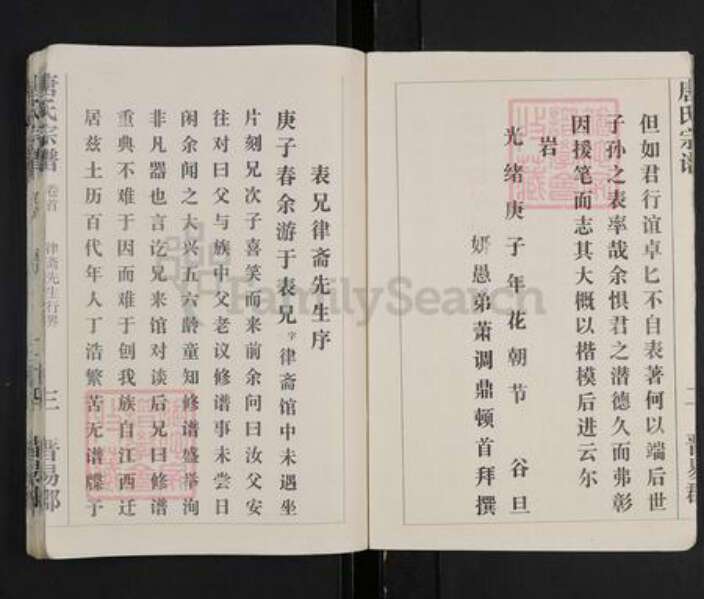 唐氏宗谱
二
晋易郡
但如君行谊卓匕不自表著何以端后世
子孙之表率哉余惧君之潜德久而弗彰
因援笔而志其大概以楷模后进云尔
岩
光绪庚子年花朝节 谷旦
妍愚弟萧调鼎顿首拜撰
表兄律斋先生序
庚子春余游于表兄字律斋馆中未遇坐
片刻兄次子喜笑而来前余问曰汝父安
往对曰父与族中父老议修谱事未尝日
闲余闻之大兴五六龄童知修谱盛举洵
非凡器也言讫兄来馆对谈后兄曰修谱
重典不难于因而难于创我族自江西迁
居兹土历百代年人丁浩繁苦无谱牒子
唐氏宗谱
卷首
律斋先生行畧
三
晋易郡
FamilySearch